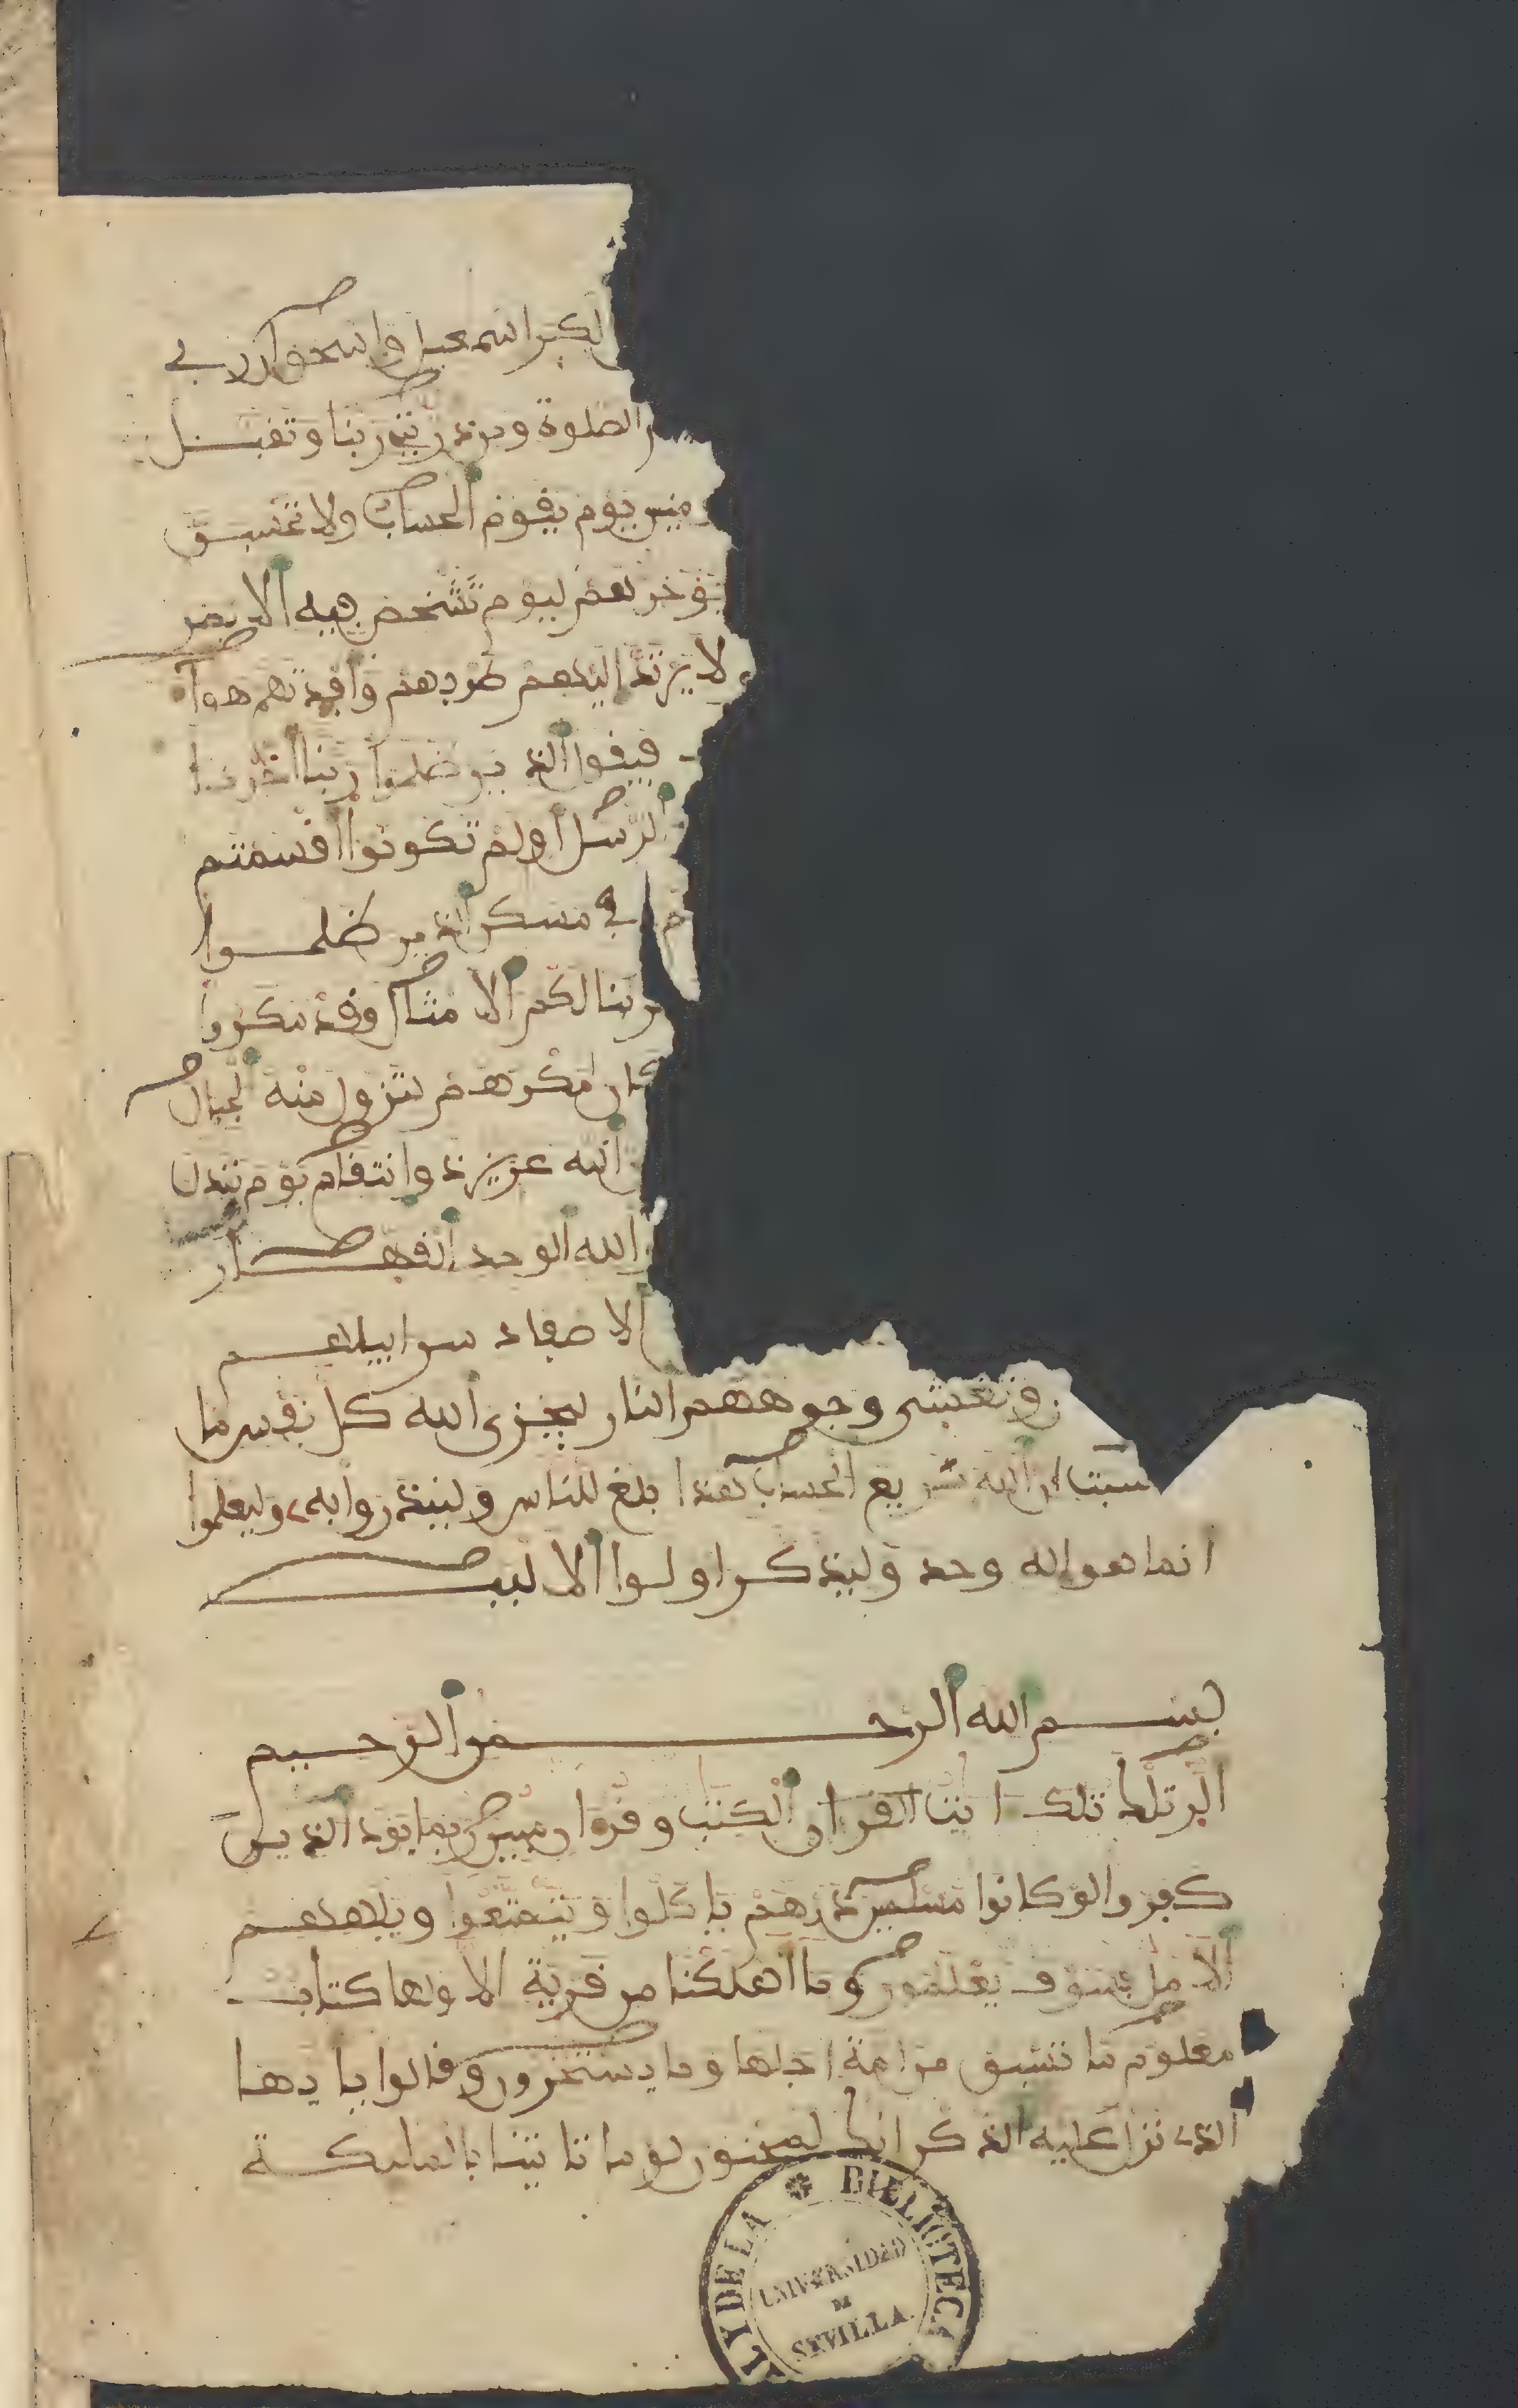 الكبر اسمعيل واسحق ان ربي
الصلوة ومن ذريتي ربنا وتقبل
منين يوم يقوم الحساب ولا تحسبن
يؤخرهم ليوم تشخص فيه الابصر
لا يرتد اليهم طرفهم وافدتهم هوا
فيقول الذين ظلموا ربنا اخرنا
الرسل اولم تكونوا اقسمتم
في مسكن الذين ظلموا
ربنا لكم الامثال وقد مكروا
كان مكرهم لتزول منه الجبال
الله عزيز ذو انتقام يوم تبدل
الله الوحد القهار
الاصفاد سرابيلهم
وتغشى وجوههم النار ليجزي الله كل نفس ما
كسبت ان الله سريع الحساب هذا بلغ للناس ولينذروا به وليعلموا
انما هو اله وحد وليذكر اولوا الالبب
بسم الله الرحمن الرحيم
الر تلك ايت الكتب وقران مبين ربما يود الذين
كفروا لو كانوا مسلمين ذرهم ياكلوا ويتمتعوا ويلههم
الامل فسوف يعلمون وما اهلكنا من قرية الا ولها كتاب
معلوم ما تسبق من امة اجلها وما يستخرون وقالوا يايها
الذي نزل عليه الذكر انك لمجنون لو ما تاتينا بالمليكة
BIBLIOTECA
UNIVERSIDAD
DE
SEVILLA